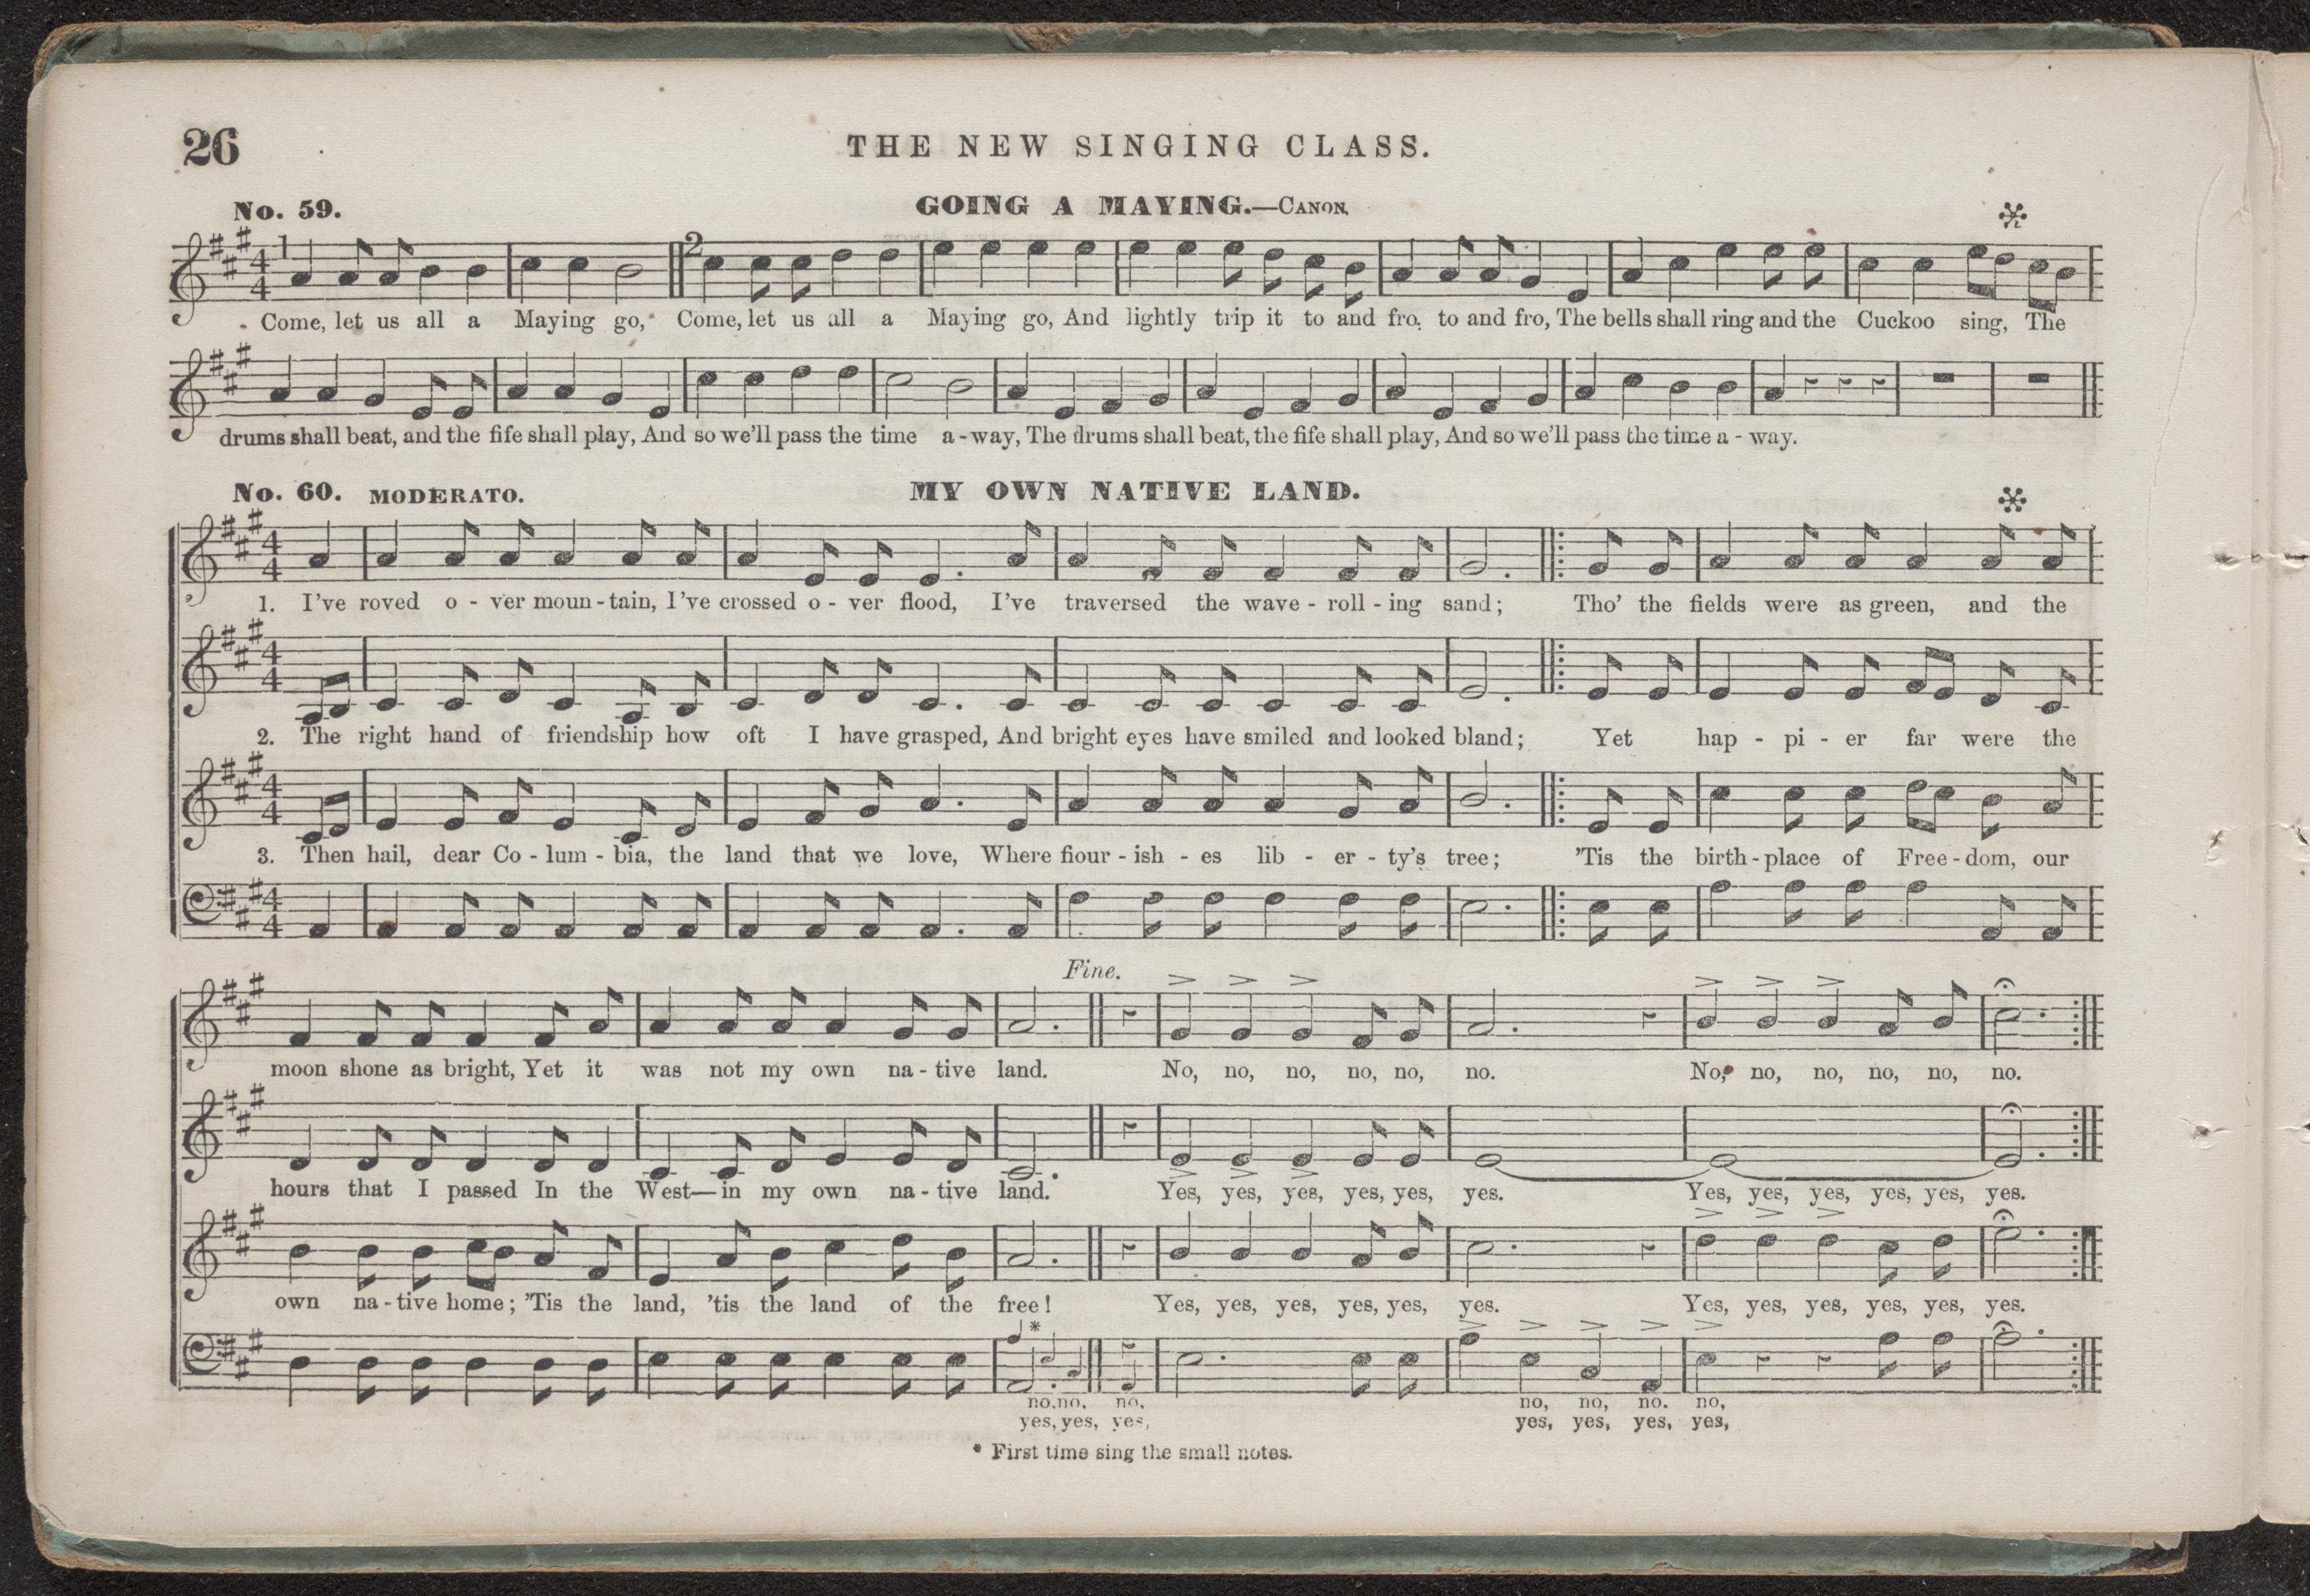 26
THE NEW SINGING CLASS.
No. 59.
GOING A MAYING.—CANON.
*
1
2
4
4
Come, let us all a Maying go, Come, let us all a Maying go, And lightly trip it to and fro, to and fro, The bells shall ring and the Cuckoo sing, The
drums shall beat, and the fife shall play, And so we'll pass the time a-way, The drums shall beat, the fife shall play, And so we'll pass the time a-way.
No. 60. MODERATO.
MY OWN NATIVE LAND.
*
4
4
1. I've roved o-ver moun-tain, I've crossed o-ver flood, I've traversed the wave-roll-ing sand; Tho' the fields were as green, and the
4
4
2. The right hand of friendship how oft I have grasped, And bright eyes have smiled and looked bland; Yet hap-pi-er far were the
4
4
3. Then hail, dear Co-lum-bia, the land that we love, Where flour-ish-es lib-er-ty's tree; 'Tis the birth-place of Free-dom, our
4
4
Fine.
moon shone as bright, Yet it was not my own na-tive land. No, no, no, no, no, no. No, no, no, no, no, no.
hours that I passed In the West—in my own na-tive land. Yes, yes, yes, yes, yes, yes. Yes, yes, yes, yes, yes, yes.
own na-tive home; 'Tis the land, 'tis the land of the free! Yes, yes, yes, yes, yes, yes. Yes, yes, yes, yes, yes, yes.
*
no. no. no, no, no, no. no,
yes, yes, yes, yes, yes, yes, yes,
* First time sing the small notes.